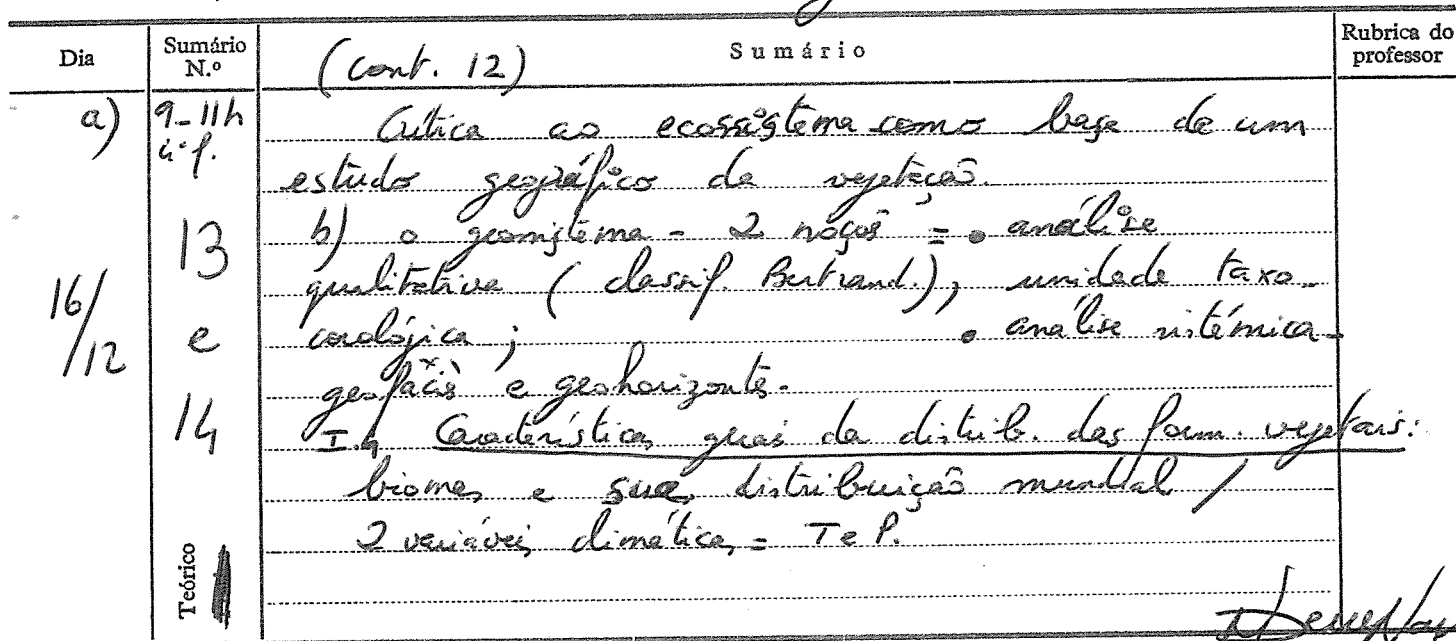 Dia
Sumário N.º
Sumário
Rubrica do professor
(cont. 12)
a) 9-11h
Crítica ao ecossistema como base de um
estudo geográfico da vegetação.
13 b) o geossistema - 2 noções = • análise
qualitativa (classif. Bertrand.), unidade taxo-
16/12 e corológica ; • análise sistémica -
geofaciès e geohorizonte.
14 I.4 Características gerais da distrib. das form. vegetais:
biomes e sua distribuição mundial /
2 variáveis climáticas = T e P.
Teórico